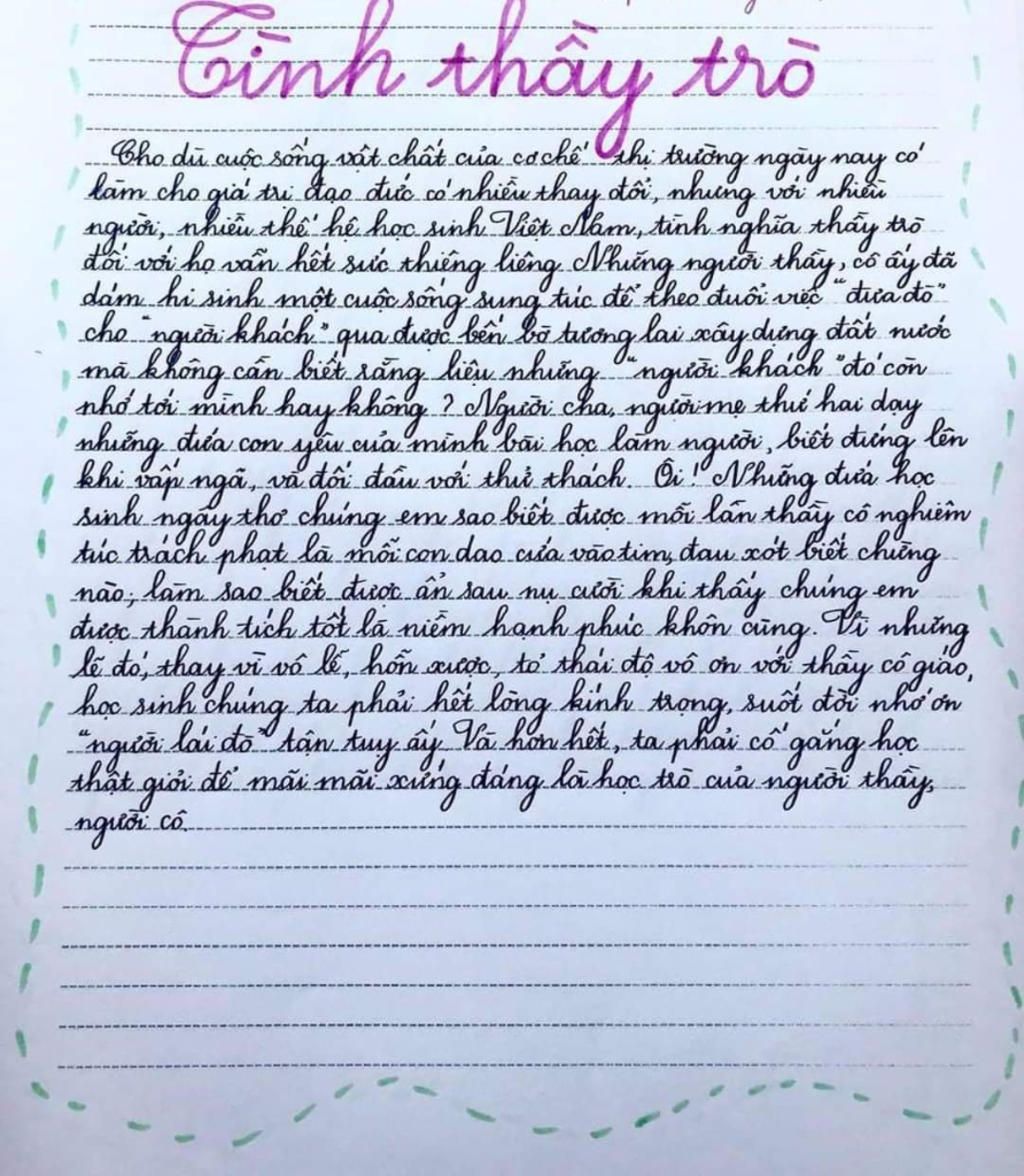 Tình thầy trò
Cho dù cuộc sống vật chất của cơ chế thị trường ngày nay có
làm cho giá trị đạo đức có nhiều thay đổi, nhưng với nhiều
người, nhiều thế hệ học sinh Việt Nam, tình nghĩa thầy trò
đối với họ vẫn hết sức thiêng liêng. Những người thầy, cô ấy đã
dám hi sinh một cuộc sống sung túc để theo đuổi việc "đưa đò"
cho "người khách" qua được bến bờ tương lai xây dựng đất nước
mà không cần biết rằng liệu những "người khách" đó còn
nhớ tới mình hay không ? Người cha, người mẹ thứ hai dạy
những đứa con yêu của mình bài học làm người, biết đứng lên
khi vấp ngã, và đối đầu với thử thách. Ôi ! Những đứa học
sinh ngây thơ chúng em sao biết được mỗi lần thầy cô nghiêm
túc trách phạt là mỗi con dao cứa vào tim, đau xót biết chừng
nào, làm sao biết được ẩn sau nụ cười khi thấy chúng em
được thành tích tốt là niềm hạnh phúc khôn cùng. Vì những
lẽ đó, thay vì vô lễ, hỗn xược, tỏ thái độ vô ơn với thầy cô giáo,
học sinh chúng ta phải hết lòng kính trọng, suốt đời nhớ ơn
"người lái đò" tận tuy ấy. Và hơn hết, ta phải cố gắng học
thật giỏi để mãi mãi xứng đáng là học trò của người thầy,
người cô.